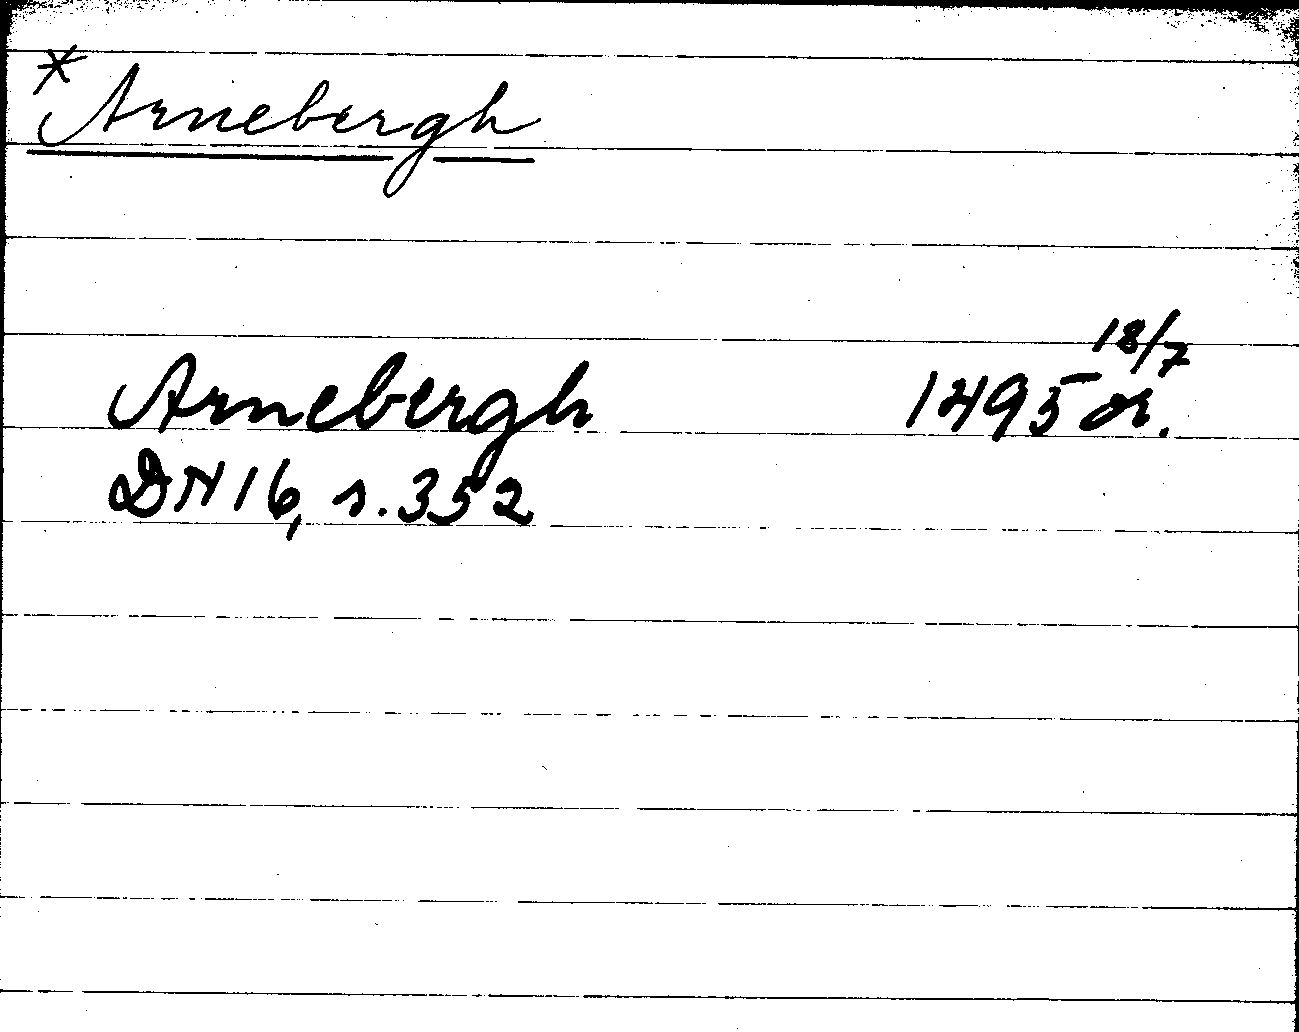 *Arnebergh
Arnebergh 1495 18/7 or.
DN 16, s. 352